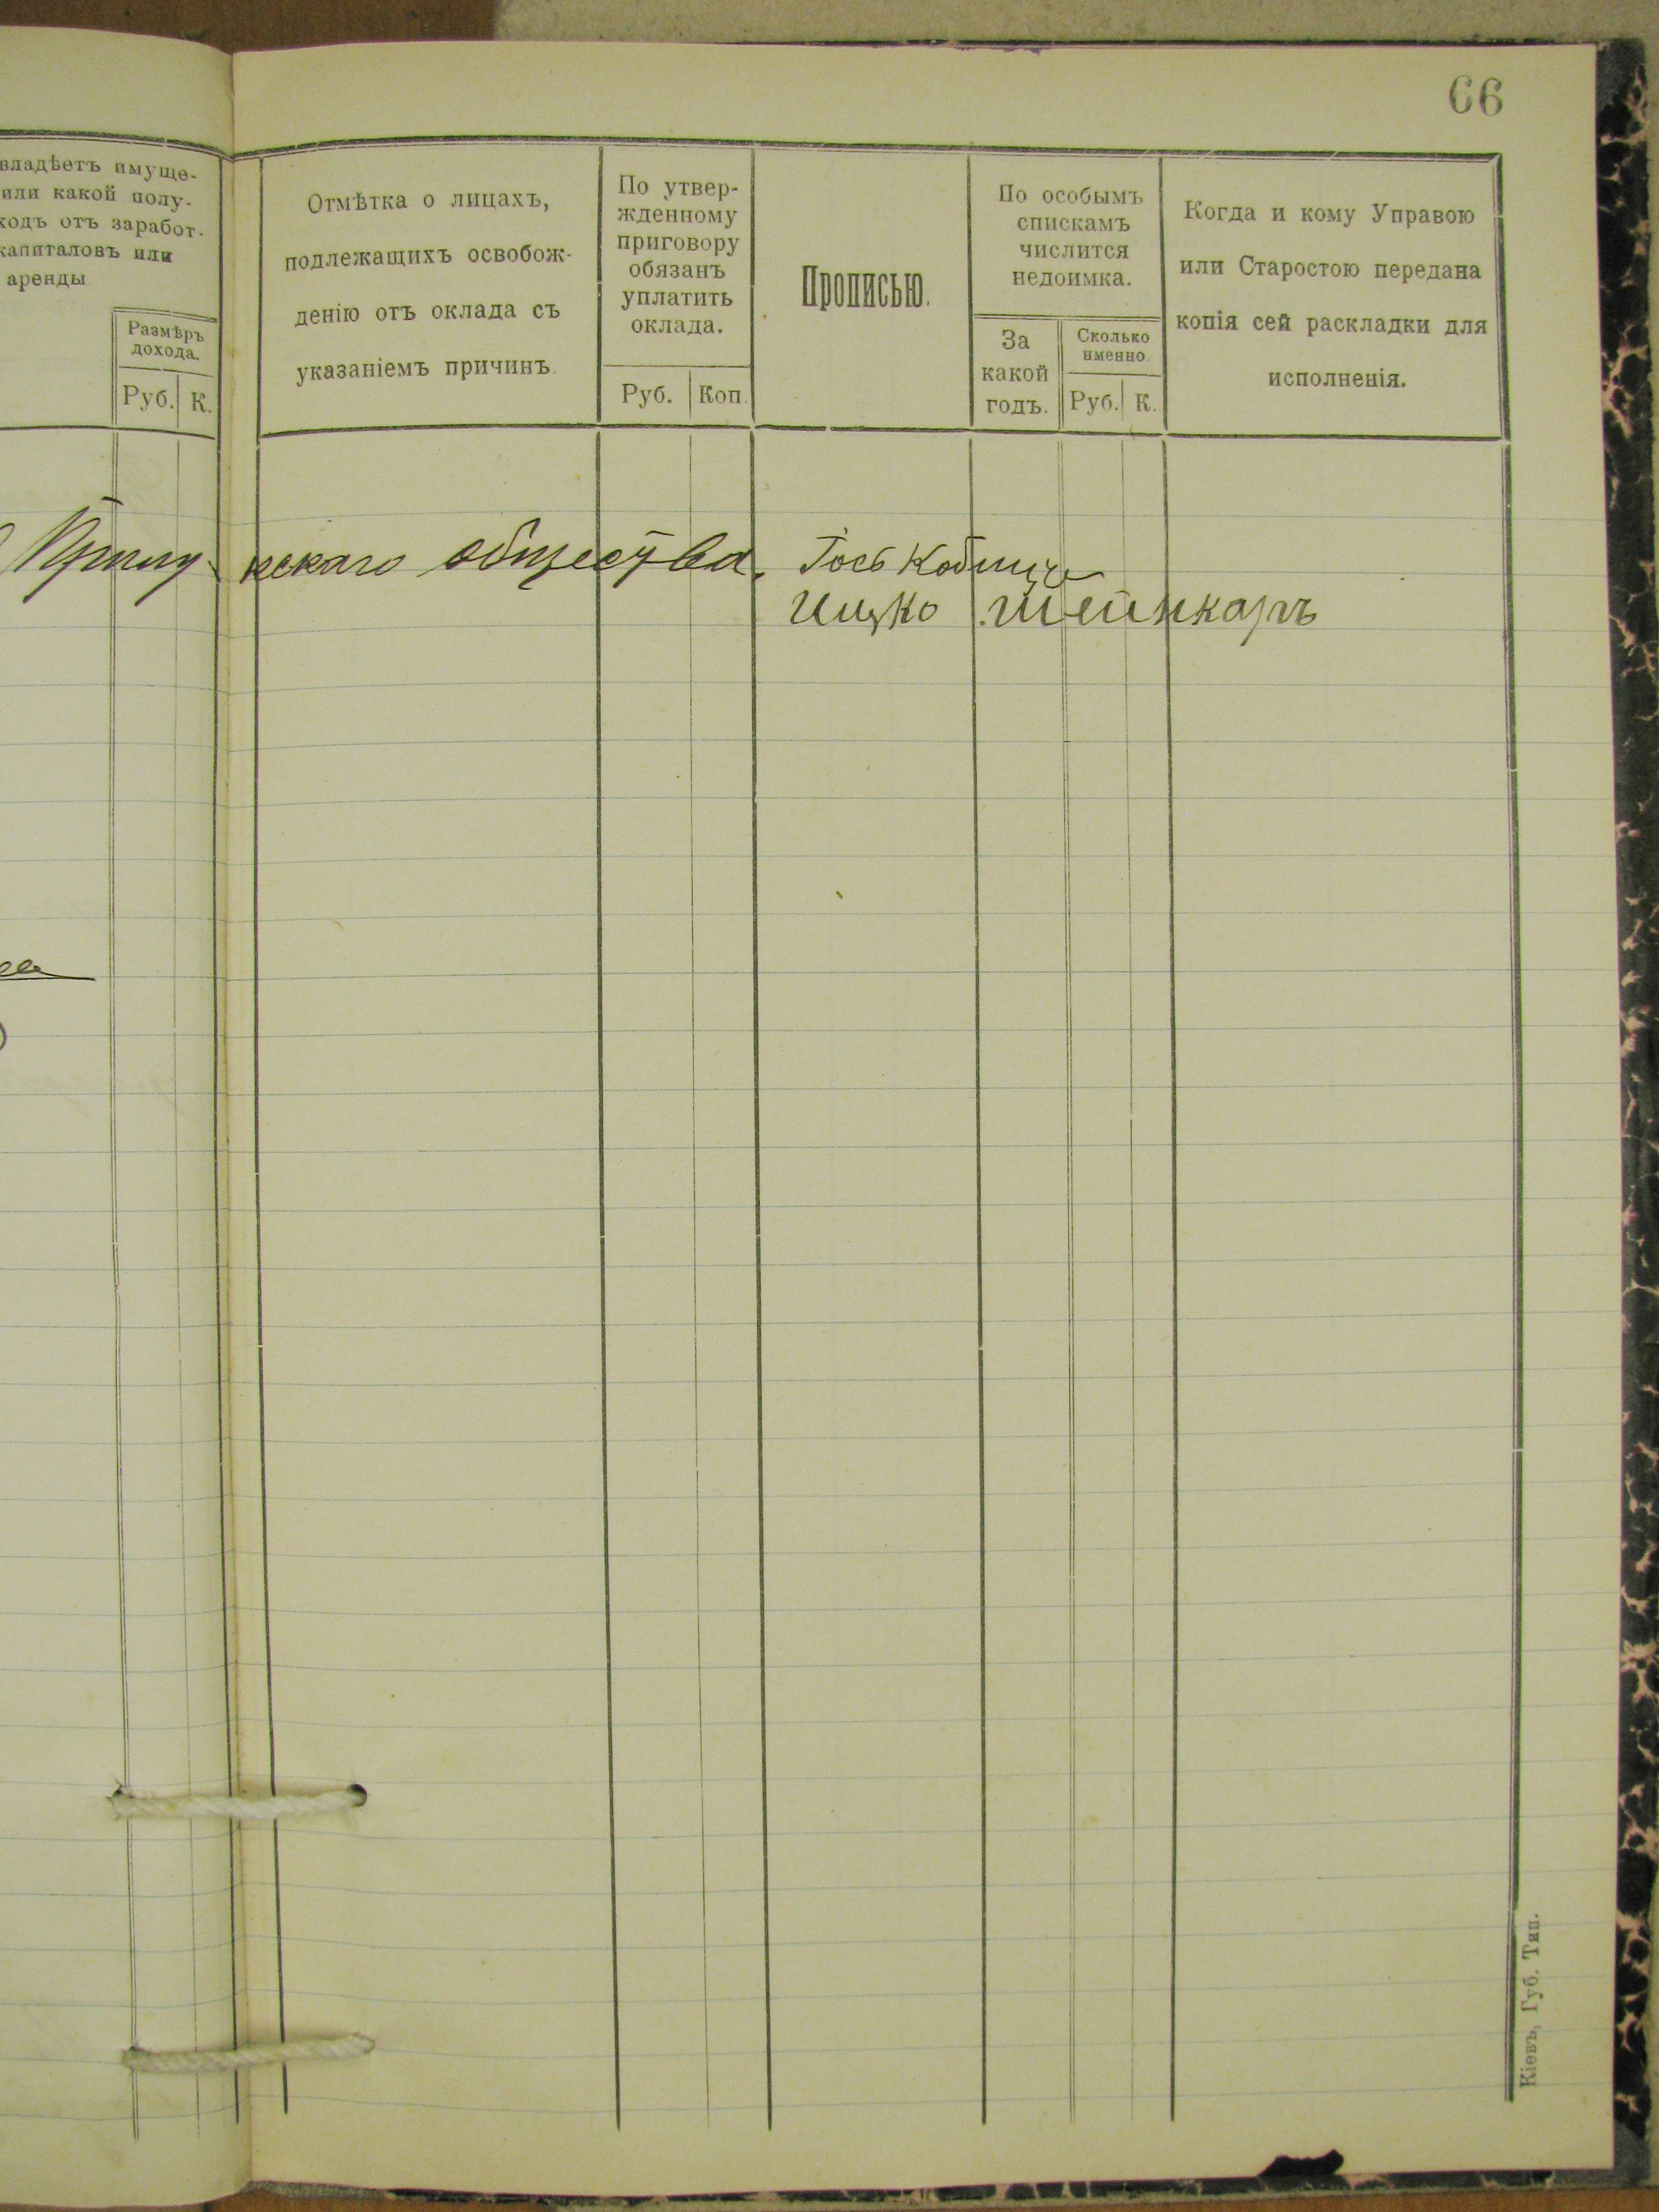 66
владѣетъ имуще-
или какой полу-
ходъ отъ заработ.
капиталовъ или
аренды
Размѣръ
дохода.
Руб. К.
Отмѣтка о лицахъ,
подлежащихъ освобож-
денію отъ оклада съ
указаніемъ причинъ.
По утвер-
жденному
приговору
обязанъ
уплатить
оклада.
Руб. Коп.
Прописью.
По особымъ
спискамъ
числится
недоимка.
За
какой
годъ.
Сколько
именно.
Руб. К.
Когда и кому Управою
или Старостою передана
копія сей раскладки для
исполненія.
Прилу- кскаго общества,
Ицко Шейнкаръ
Кіевъ, Губ. Тип.